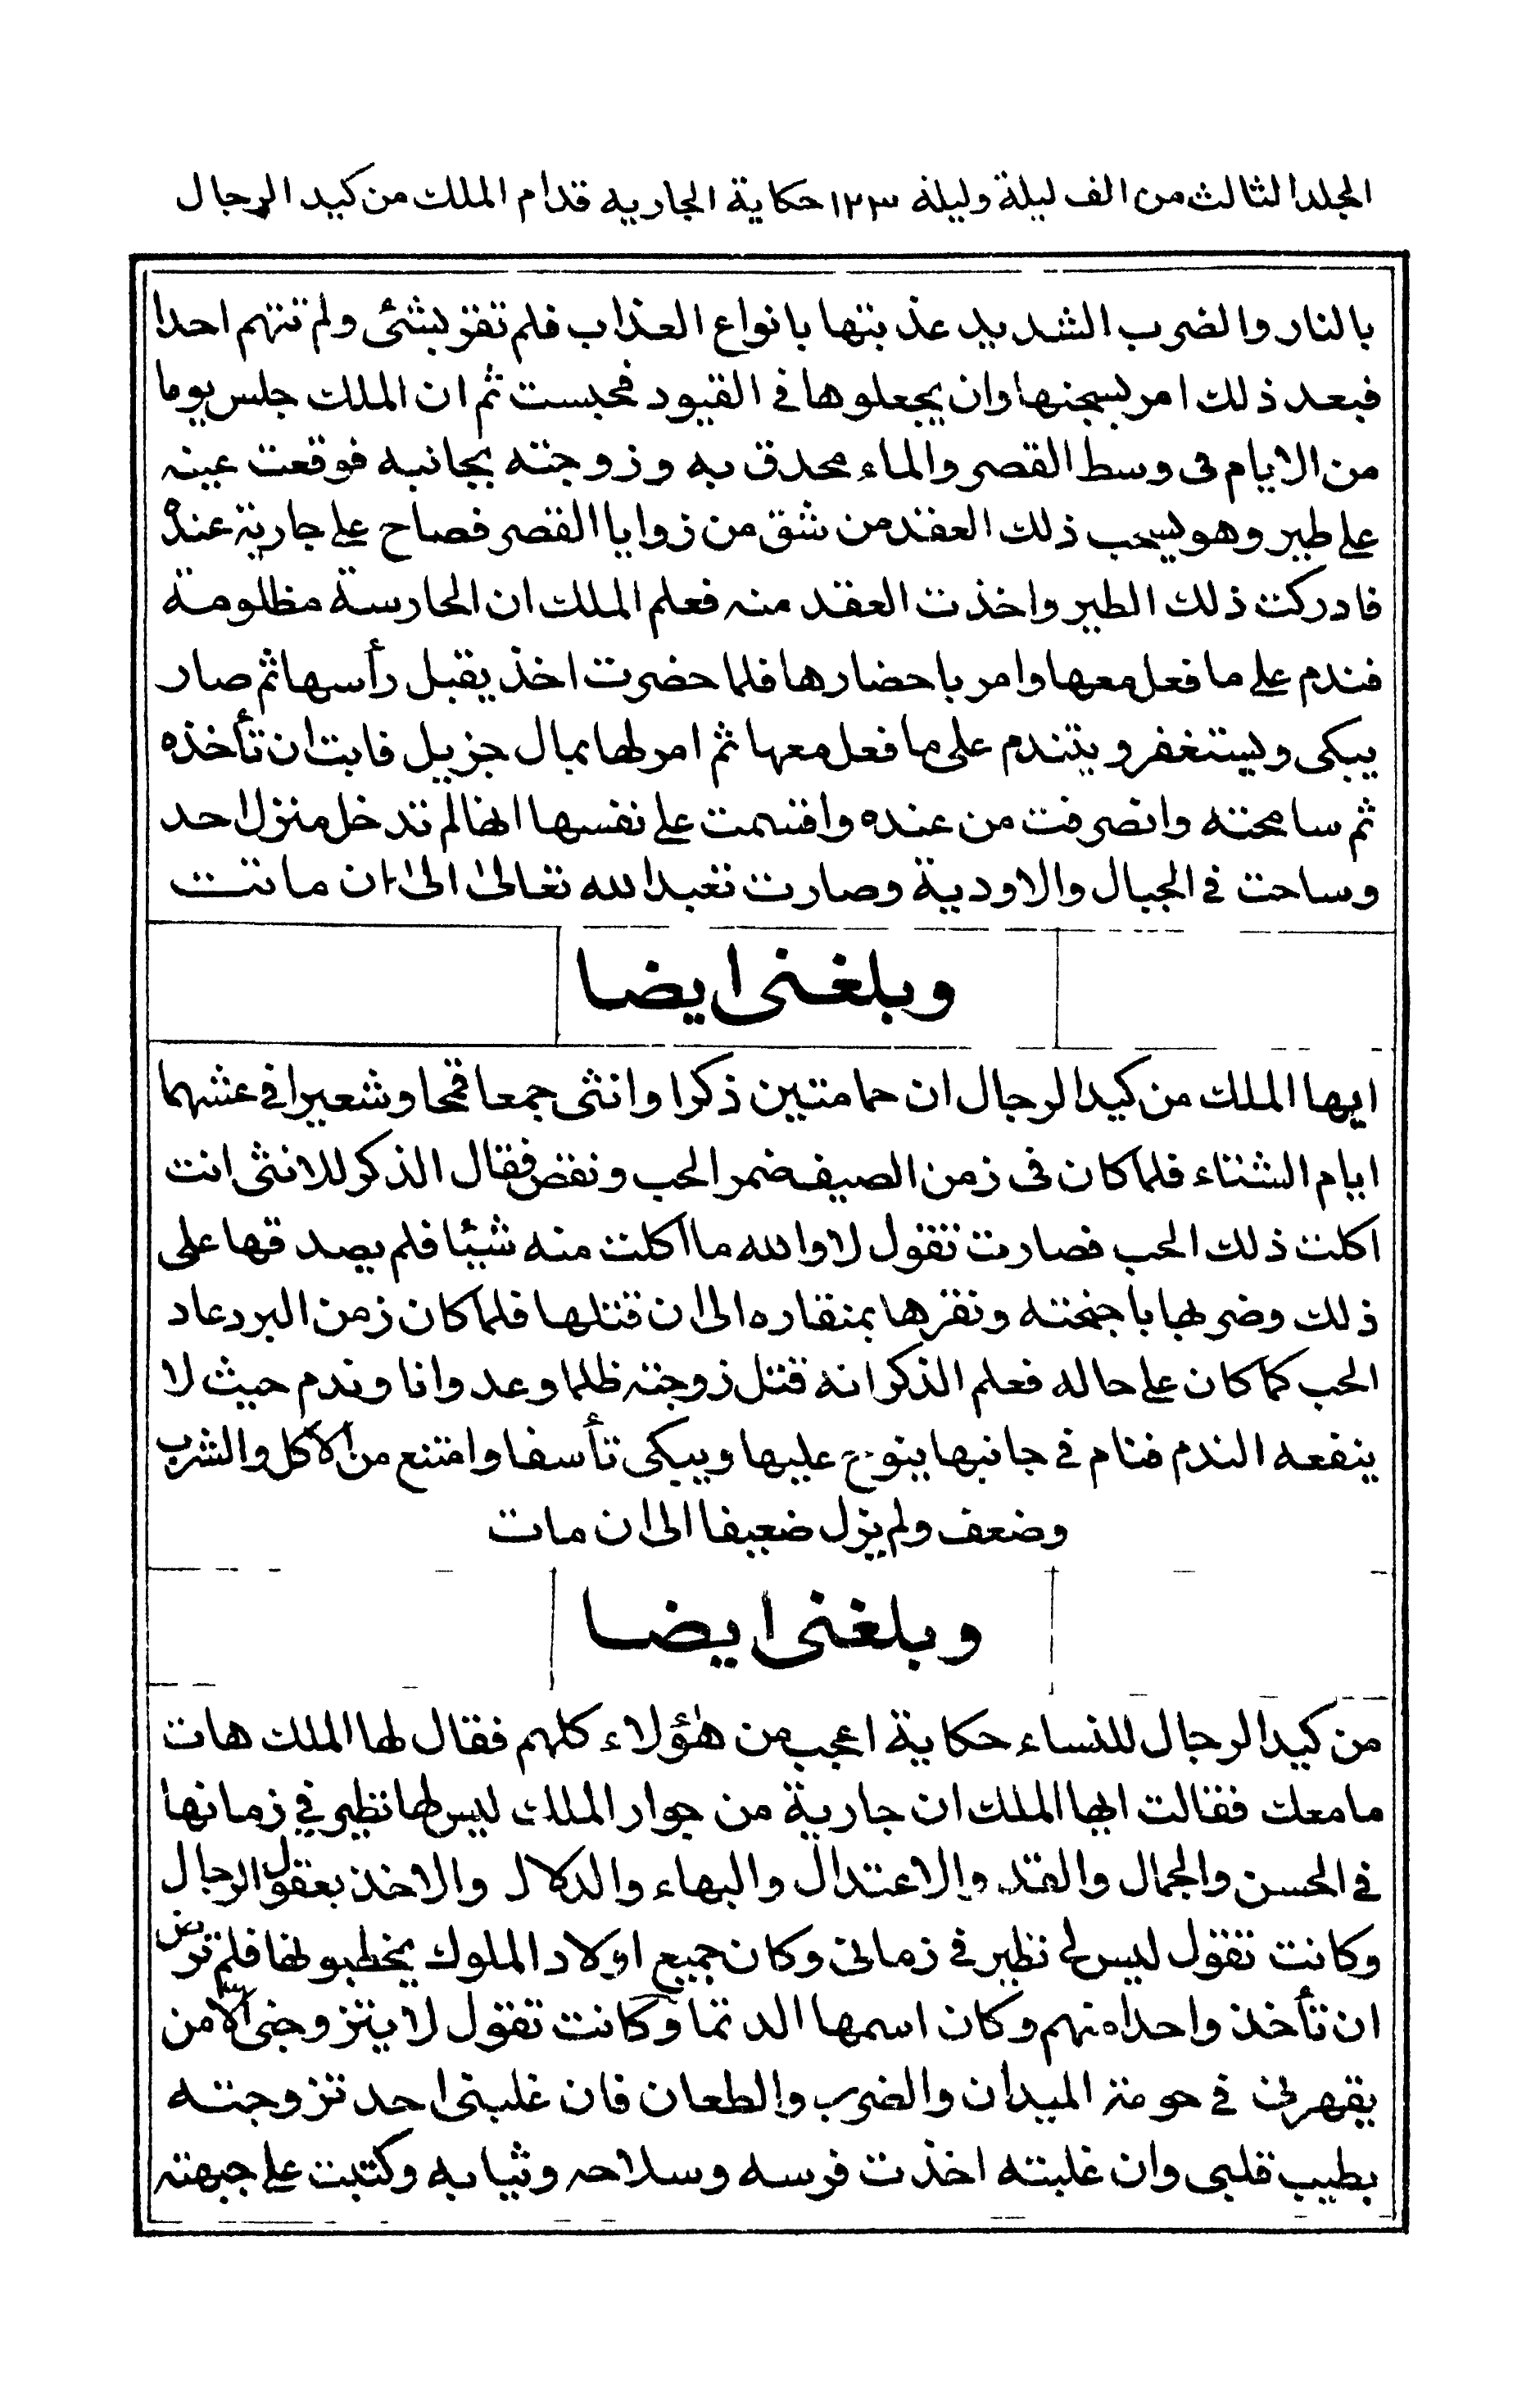 المجلد الثالث من الف ليلة وليلة ١٢٣ حكاية الجارية قدام الملك من كيد الرجال
بالنار والضرب الشديد عذبتها بانواع العذاب فلم تقر بشئ ولم تتهم احدا
فبعد ذلك امر بسجنها وان يجعلوها في القيود فحبست ثم ان الملك جلس يوما
من الايام فى وسط القصر والماء محدق به وزوجته بجانبه فوقعت عينه
على طير وهو يسحب ذلك العقد من شق من زوايا القصر فصاح على جارية عنده
فادركت ذلك الطير واخذت العقد منه فعلم الملك ان الحارسة مظلومة
فندم على ما فعل معها وامر باحضارها فلما حضرت اخذ يقبل رأسها ثم صار
يبكى ويستغفر ويتندم على ما فعل معها ثم امر لها بمال جزيل فابت ان تأخذه
ثم سامحته وانصرفت من عنده واقسمت على نفسها انها لم تدخل منزل احد
وساحت في الجبال والاودية وصارت تعبد الله تعالى الى ان ماتت
وبلغنى ايضا
ايها الملك من كيد الرجال ان حمامتين ذكرا وانثى جمعا قمحا وشعيرا في عشهما
ايام الشتاء فلما كان فى زمن الصيف ضمر الحب ونقص فقال الذكر للانثى انت
اكلت ذلك الحب فصارت تقول لا والله ما اكلت منه شيئا فلم يصدقها على
ذلك وضربها باجنحته ونقرها بمنقاره الى ان قتلها فلما كان زمن البرد عاد
الحب كما كان على حاله فعلم الذكر انه قتل زوجته ظلما وعدوانا وندم حيث لا
ينفعه الندم فنام في جانبها ينوح عليها ويبكى تأسفا وامتنع من الاكل والشرب
وضعف ولم يزل ضعيفا الى ان مات
وبلغنى ايضا
من كيد الرجال للنساء حكاية اعجب من هؤلاء كلهم فقال لها الملك هات
ما معك فقالت ايها الملك ان جارية من جوار الملك ليس لها نظير في زمانها
في الحسن والجمال والقد والاعتدال والبهاء والدلال والاخذ بعقول الرجال
وكانت تقول ليس لى نظير في زمانى وكان جميع اولاد الملوك يخطبونها فلم ترض
ان تأخذ واحدا منهم وكان اسمها الدتما وكانت تقول لا يتزوجنى الا من
يقهرنى في حومة الميدان والضرب والطعان فان غلبنى احد تزوجته
بطيب قلبى وان غلبته اخذت فرسه وسلاحه وثيابه وكتبت على جبهته